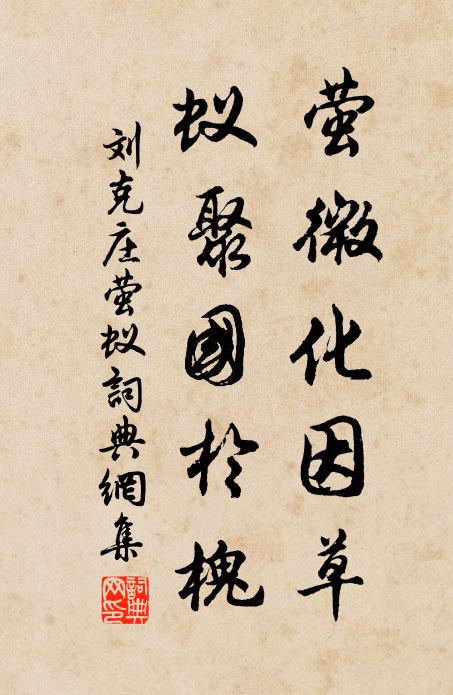 萤微化因草
蚁聚國於槐
刘克庄萤蚁詞典網集
詞典
网印